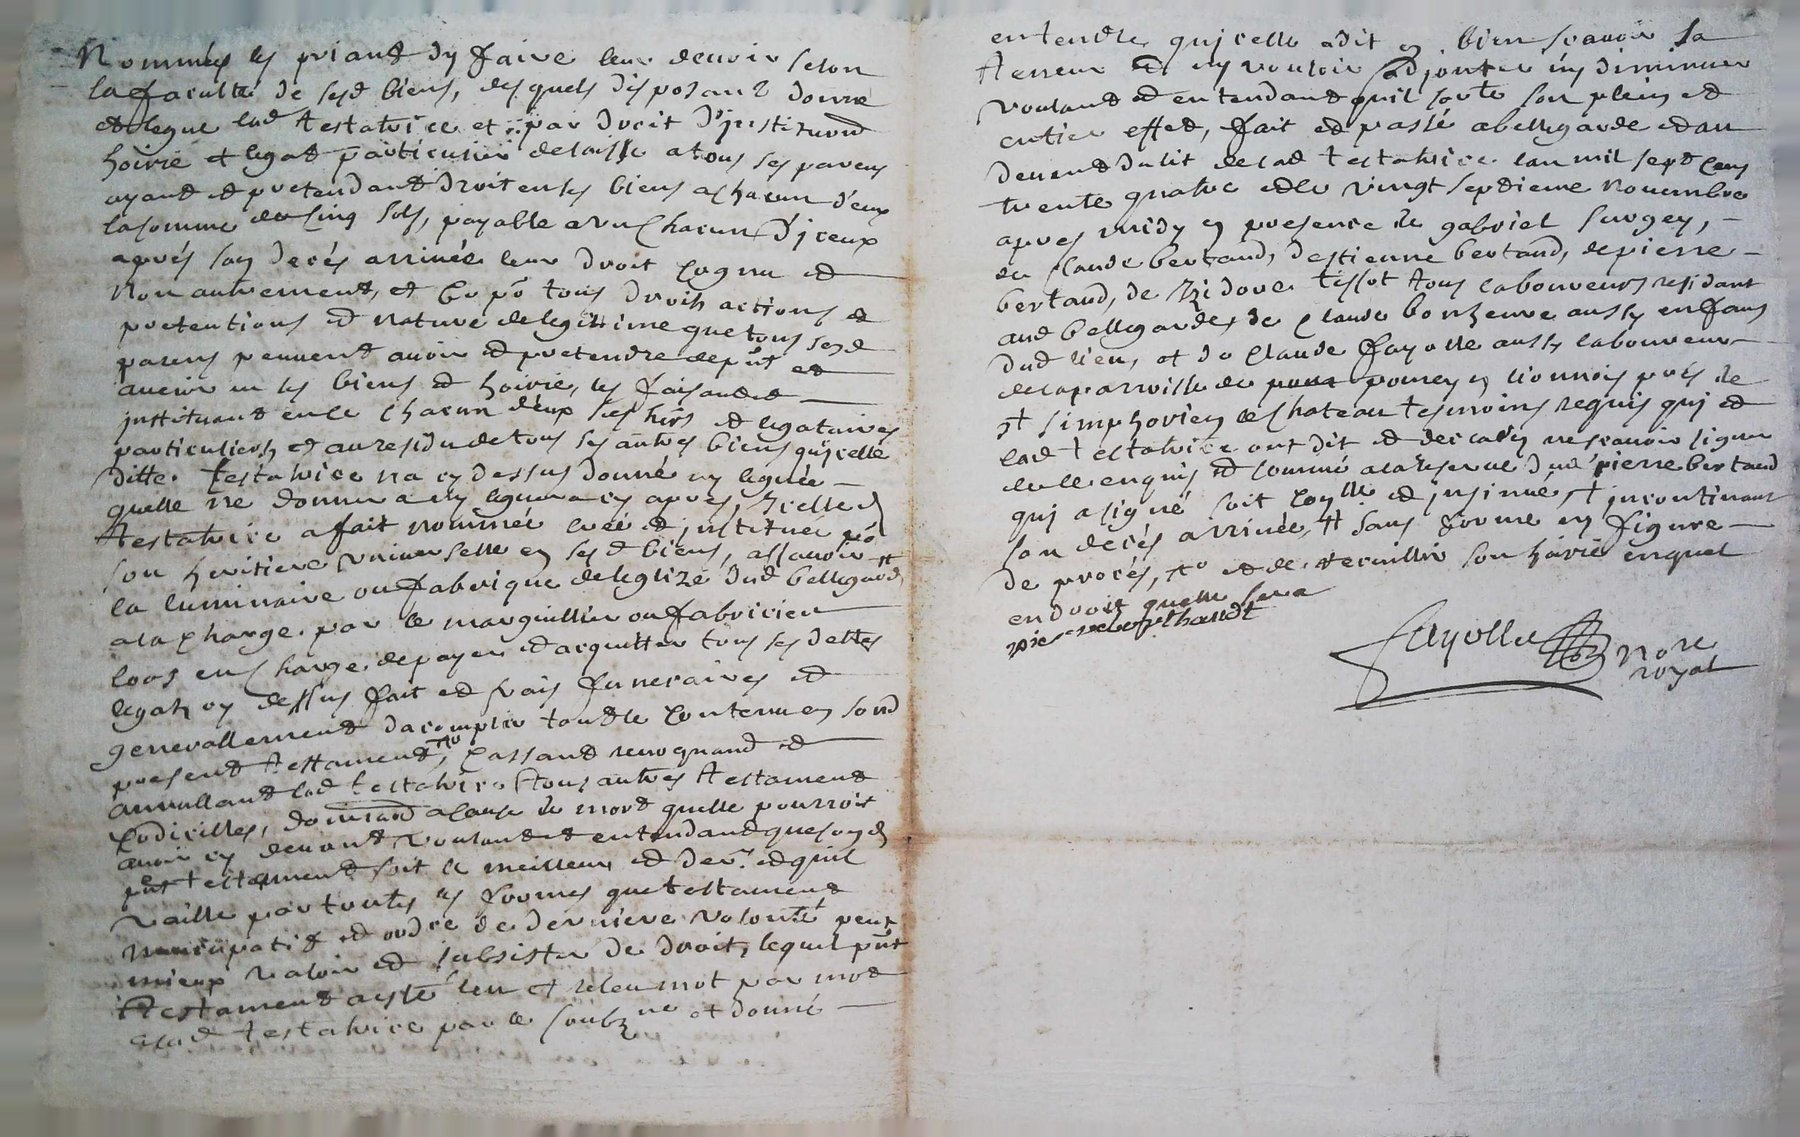 Nommées les priant dy faire leur devoir selon
la faculté de sesd biens, desquels disposant donne
et legue lad testatrice et par droit d'institution
hoirie et legat particulier delaisse a tous ses parens
ayant et pretendant droit en ses biens a chacun d'eux
la somme de cinq sols, payable a un chacun d'iceux
après son decés arrivée leur droit cognu et
non autrement, et tous droits actions et
pretentions et nature de legittime que tous sesd
parens peuvent avoir et pretendre de pnt et
avenir en ses biens et hoirie, les faisant et
instituant en ce chacun d'eux ses hers et legataires
particuliers, et au residu de tous ses autres biens quicelle
ditte testatrice na cy dessus donné ny legué
quelle ne donnera ny leguera cy apres, Icelle d
testatrice a fait nommée créé et instituée po
son heritiere universelle en sesd biens, assavoir
la luminaire ou fabrique de leglize dud bellegarde
a la charge par le marguillier ou fabricien
lors en charge de payer et acquitter tous ses dettes
legats cy dessus fait et frais funeraires et
generallement dacomplir tout le contenu en sond
present testament, cassant revoquand et
annullant lad testatrice tous autres testament
codicilles, donnaon a cause de mort quelle pourroit
avoir cy devant voulant et entendant que son d
pnt testament soit le meilleur et der. et quil
vaille par toutes les formes que testament
nuncupatif et ordre de derniere volonté peut
mieux valoir et subsister de droit, lequel pnt
testament a esté leu et releu mot par mot
a lad testatrice par le soubz ne et donné
entendre quicelle a dit bien scavoir la
teneur et ny vouloir adjouter ny diminuer
voulant et entendant quil sorte son plein et
entier effet, fait et passé a bellegarde et au
devant du lit de lad testatrice lan mil sept cens
trente quatre et le vingt septieme novembre
apres midy en presence de gabriel surgey,
de claude bertand, destienne bertand, de pierre
bertand, de Izidore tissot tous laboureurs residant
aud bellegarde, de claude bonheure aussy enfans
dud lieu, et de claude fayolle aussy laboureur
de la parroisse de pomey en lionnois pres de
st simphorien le chateau tesmoins requis qui et
lad testatrice ont dit et declaré ne scavoir signer
de ce enquis et sommé a la reserve dud pierre bertand
qui a signé soit coyllé et insinué st incontinant
son decés arrivée, st sans forme ny figure
de procés, et de recuillir son hoirie enquel
endroit quelle sera
Fayolle no re
royal